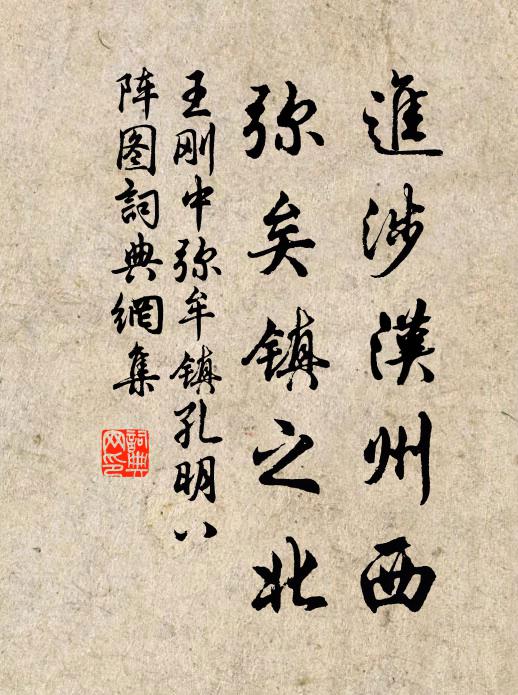 進涉漢州西
弥矣镇之北
王刚中弥牟镇孔明八
阵图詞典網集
詞典
网印